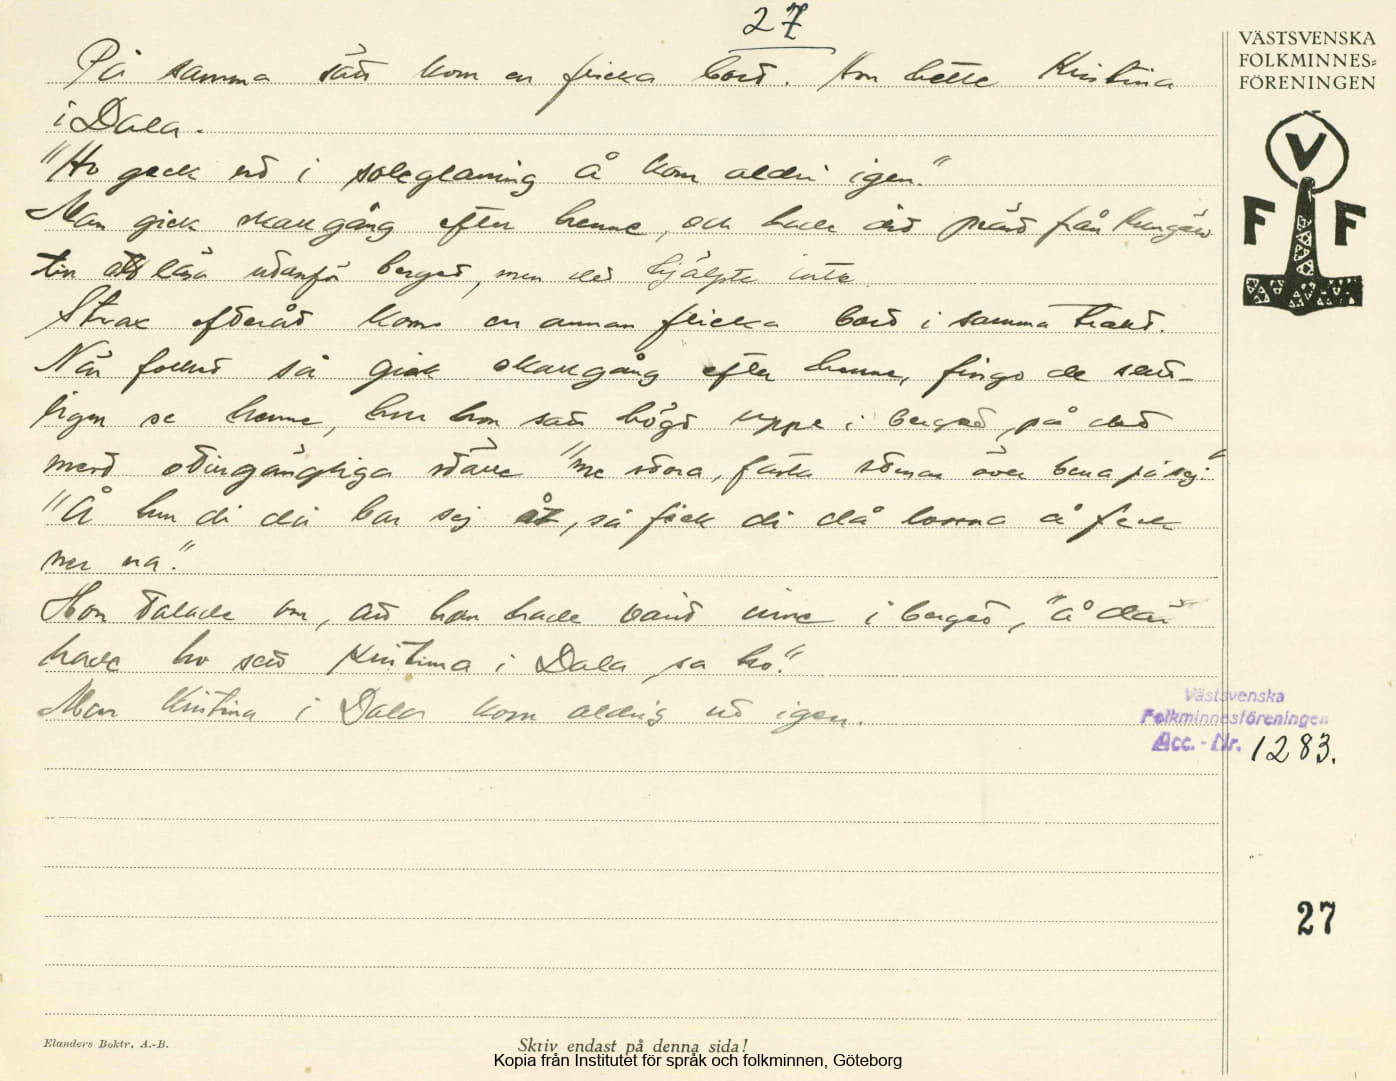 27
På samma sätt kom en flicka bort. Hon hette Kristina
i Dala.
"Ho geck ut i soleglaning å kom aldri igen."
Man gick skallgång efter henne, och hade åt präst från Kungälv
till att läsa utanför berget, men det hjälpte inte.
Strax efteråt kom en annan flicka bort i samma trakt.
När folket så gick skallgång efter henne, fingo de slut-
ligen se henne, hur hon satt högt uppe i berget på det
mest otillgängliga ställe "me stora, stenar över bena på sej."
"Å hur di då bar sej åt, så feck di då lossna å feck
ner na."
Hon talade om, att hon hade varit inne i berget, "å där
hade ho sett Kristina i Dala sa ho."
Men Kristina i Dala kom aldrig ut igen.
VÄSTSVENSKA
FOLKMINNES=
FÖRENINGEN
V
F F
Västsvenska
Folkminnesföreningen
Acc. - Nr. 1283.
27
Elanders Boktr. A.-B.
Skriv endast på denna sida!
Kopia från Institutet för språk och folkminnen, Göteborg